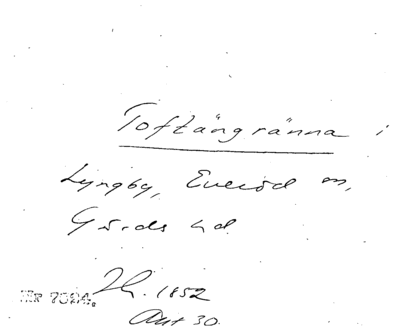 Toftängränna i
Lyngby, Everöd sn,
Gärds hd
Th. 1852
Ant 30.